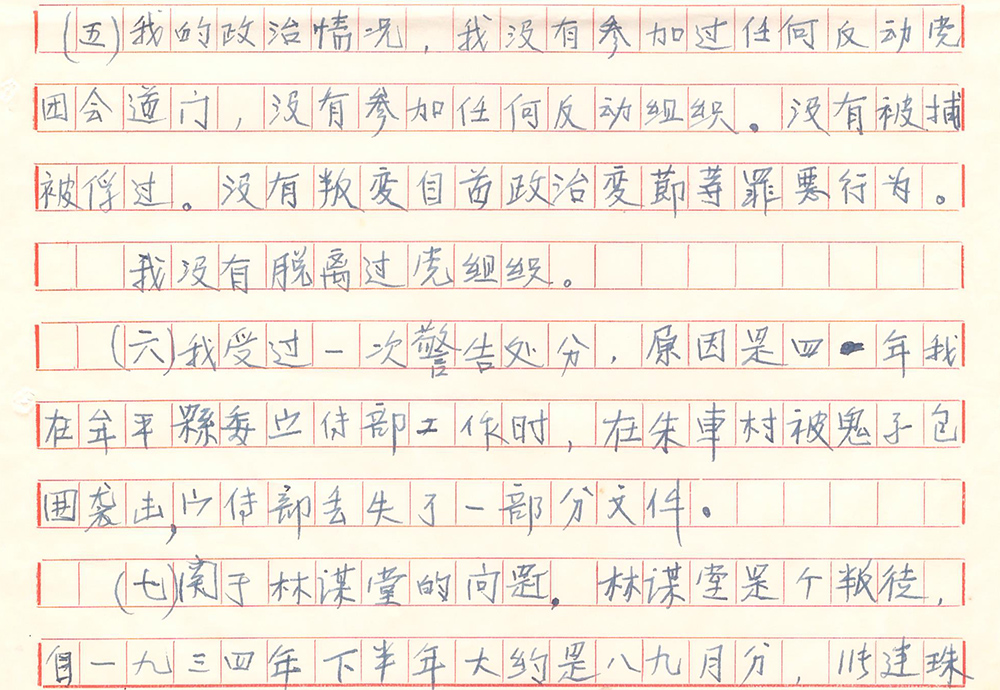 (五)我的政治情况，我没有参加过任何反动党
团会道门，没有参加任何反动组织。没有被捕
被俘过。没有叛变自首政治变節等罪惡行为。
我没有脱离过党组织。
(六)我受过一次警告处分，原因是四一年我
在牟平縣委宣传部工作时，在朱車村被鬼子包
围袭击，宣传部丢失了一部分文件。
(七)関于林谋堂的问题。林谋堂是个叛徒，
自一九三四年下半年大约是八九月分，许建珠